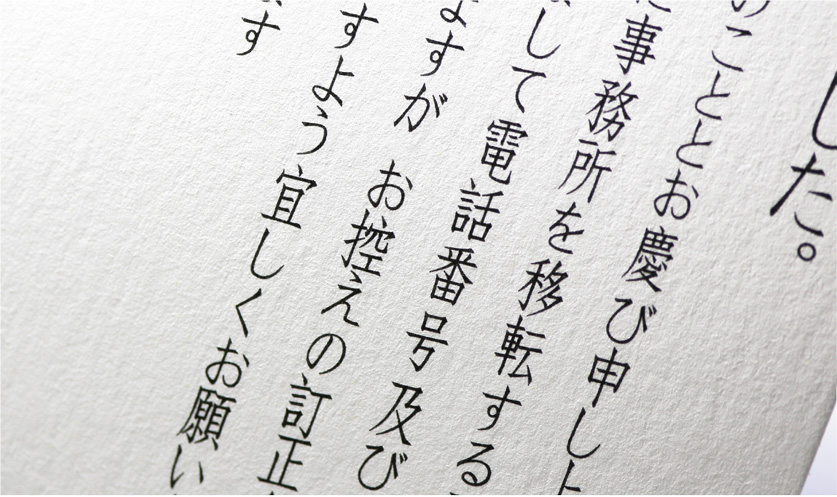 した。
のこととお慶び申し上
に事務所を移転する
して電話番号及び
ますが お控えの訂正
すよう宜しくお願い
ます